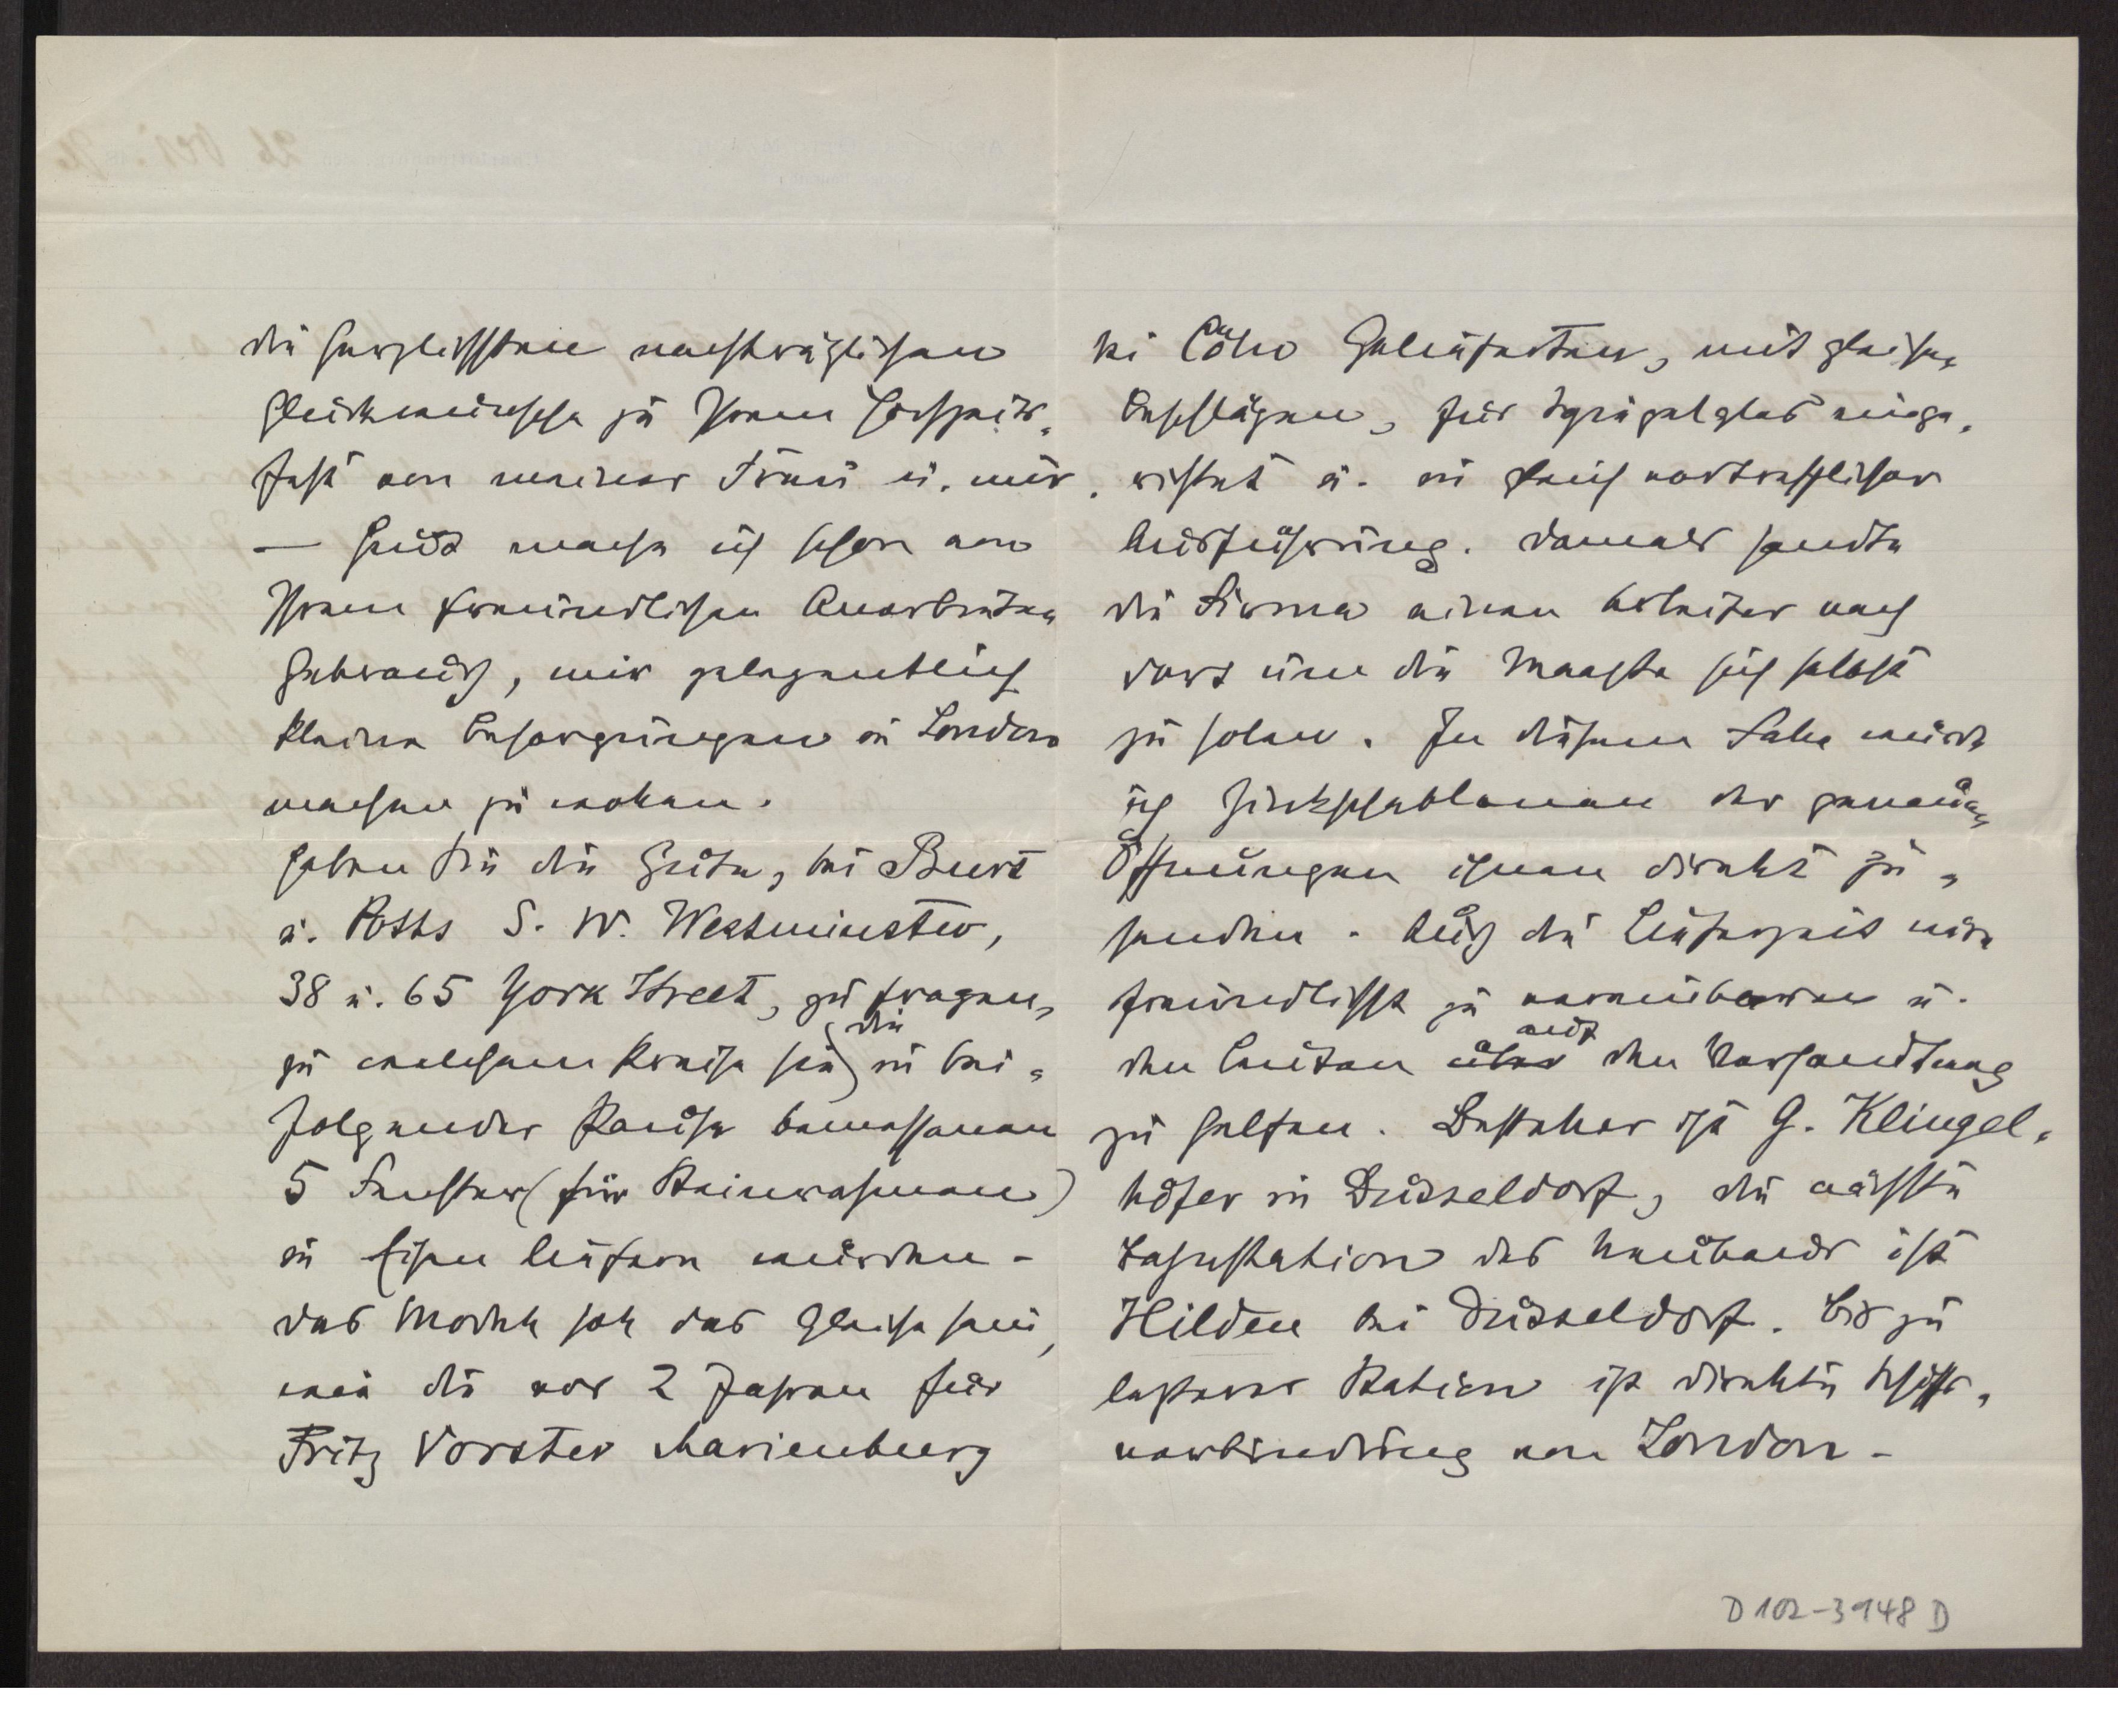 die herzlichsten nachträglichen
Glückwünsche zu Ihrem Hochzeits-
fest von meiner Frau u. mir.
— Heute mache ich schon von
Ihrem freundlichen Anerbieten
Gebrauch, mir gelegentlich
kleine Besorgungen in London
machen zu wollen.
Haben Sie die Güte, bei Burt
u. Potts S. W. Westminster,
38 u. 65 York Street, zu fragen,
zu welchem Preise sie die in bei-
folgender Pause bemessenen
5 Fenster (für Steinrahmen)
in Eisen liefern würden –
das Modell soll das Gleiche sein,
wie die vor 2 Jahren für
Fritz Vorster Marienburg
bei Cöln Gelieferten, mit gleichen
Beschlägen, für Spiegelglas einge-
richtet u. in gleich vortrefflicher
Ausführung. Damals sandte
die Firma einen Arbeiter nach
dort um die Maaße sich selbst
zu holen. In diesem Falle würde
ich Zinkschablonen der genauen
Öffnungen ihnen direkt zu-
senden. Auch die Lieferzeit wäre
freundlichst zu vereinbaren u.
den Leuten auf den
zu helfen. Besteller ist G. Klingel-
höfer in Düsseldorf, die nächste
Bahnstation des Neubaus ist
Hilden bei Düsseldorf. Bis zu
letzterer Station ist direkte Schiffs-
verbindung von London –
D 102-3948 D